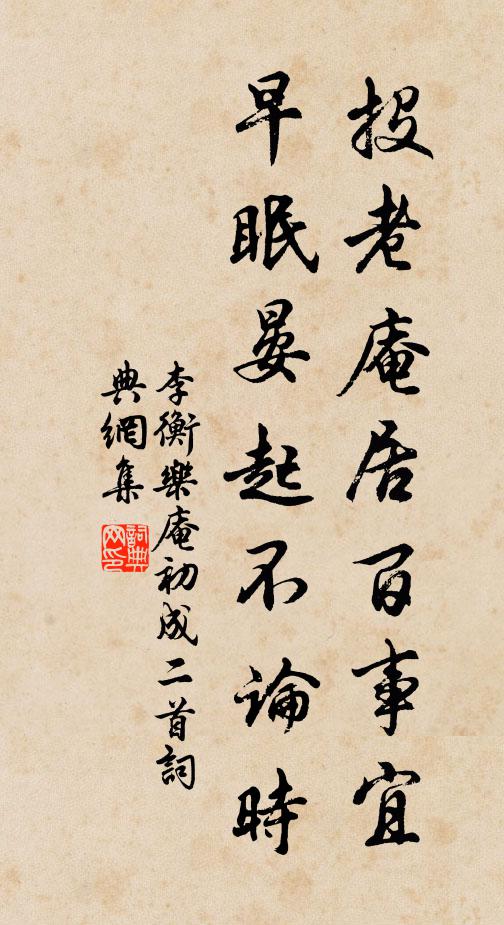 投老庵居百事宜
早眠晏起不論時
李衡樂庵初成二首詞
典網集
詞典
网印